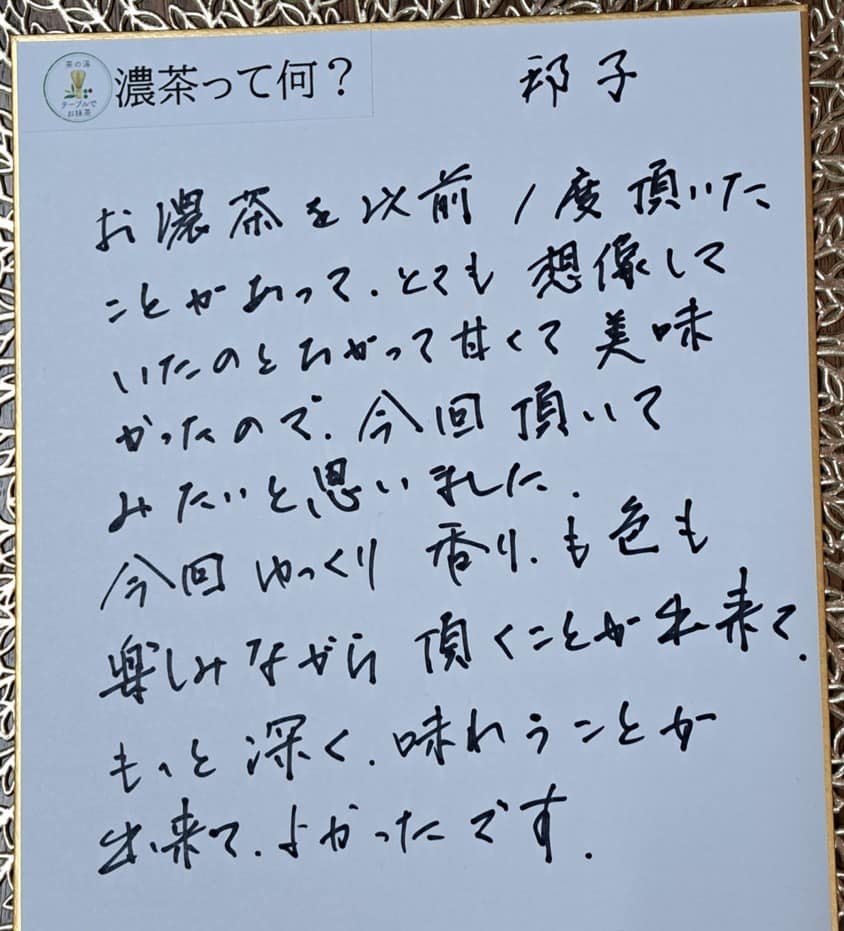 茶の湯
テーブルで
お抹茶
濃茶って何？
邦子
お濃茶を以前1度頂いた
ことがあって、とても想像して
いたのとちがって甘くて美味
かったので、今回頂いて
みたいと思いました。
今回ゆっくり香り、も色も
楽しみながら頂くことが出来て、
もっと深く、味わうことが
出来て、よかったです。